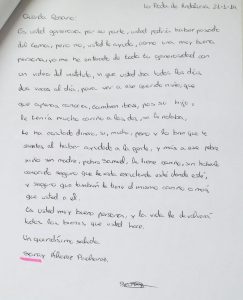 La Roda de Andalucía 21-1-14
Querida Rosario:
Es usted generosa, por su parte, usted podría haber pasado
del tema, pero no, usted le ayuda, como una muy buena
persona, yo me he enterado de toda tu generosidad con
un video del instituto, y que usted iba todos los días
dos veces al día, para ver a ese querido niño, que
que apenas conocía, cambian ibas, para su hijo,
le tenía mucho cariño a los dos, se le notaba,
te ha costado dinero, si, mucho, pero y lo bien que te
sientes al haber ayudado a la gente, y más a ese pobre
niño sin madre, pobre Samuel, le tiene cariño, sin haberle
conocido seguro que le está escuchando esté donde esté,
y seguro que también te tiene el mismo cariño o más
que usted a él.
Es usted muy buena persona, y la vida le devolverá
todas las buenas, que usted hace.
Un querídisimo saludo
Álvarez